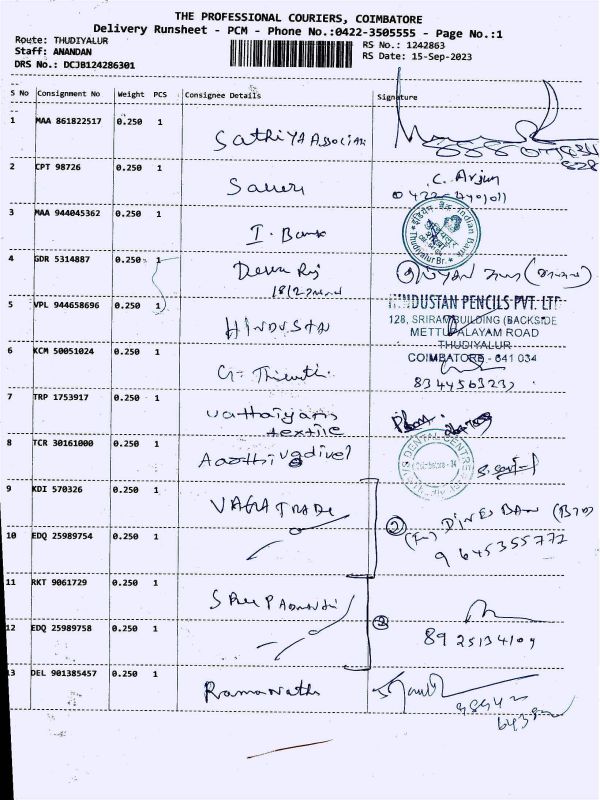 THE PROFESSIONAL COURIERS, COIMBATORE
Delivery Runsheet - PCM - Phone No.:0422-3505555 - Page No.:1
Route: THUDIYALUR
Staff: ANANDAN
DRS No.: DCJB124286301
RS No.: 1242863
RS Date: 15-Sep-2023
S No Consignment No Weight PCS Consignee Details Signature
1 MAA 861822517 0.250 1 Sathiya Associa
2 CPT 98726 0.250 1
C. Arjun
3 MAA 944045362 0.250 1 I. Bank
इंडियन बैंक Indian Bank
Thudiyalur Br.
4 GDR 5314887 0.250 1 Deva Raj
5 VPL 944658696 0.250 1 HINDUSTAN
HINDUSTAN PENCILS PVT. LTD
128, SRIRAM BUILDING (BACKSIDE
METTUPALAYAM ROAD
THUDIYALUR
COIMBATORE - 641 034
6 KCM 50051024 0.250 1
8344563233
7 TRP 1753917 0.250 1 vathaiyans
textile
8 TCR 30161000 0.250 1 Aazthi vadivel
DENTAL CENTRE
9 KDI 570326 0.250 1 VAGA TRADE
② DINES BAN
9645355772
10 EDQ 25989754 0.250 1
11 RKT 9061729 0.250 1
12 EDQ 25989758 0.250 1
③ 8925134109
13 DEL 901385457 0.250 1 Ramanath